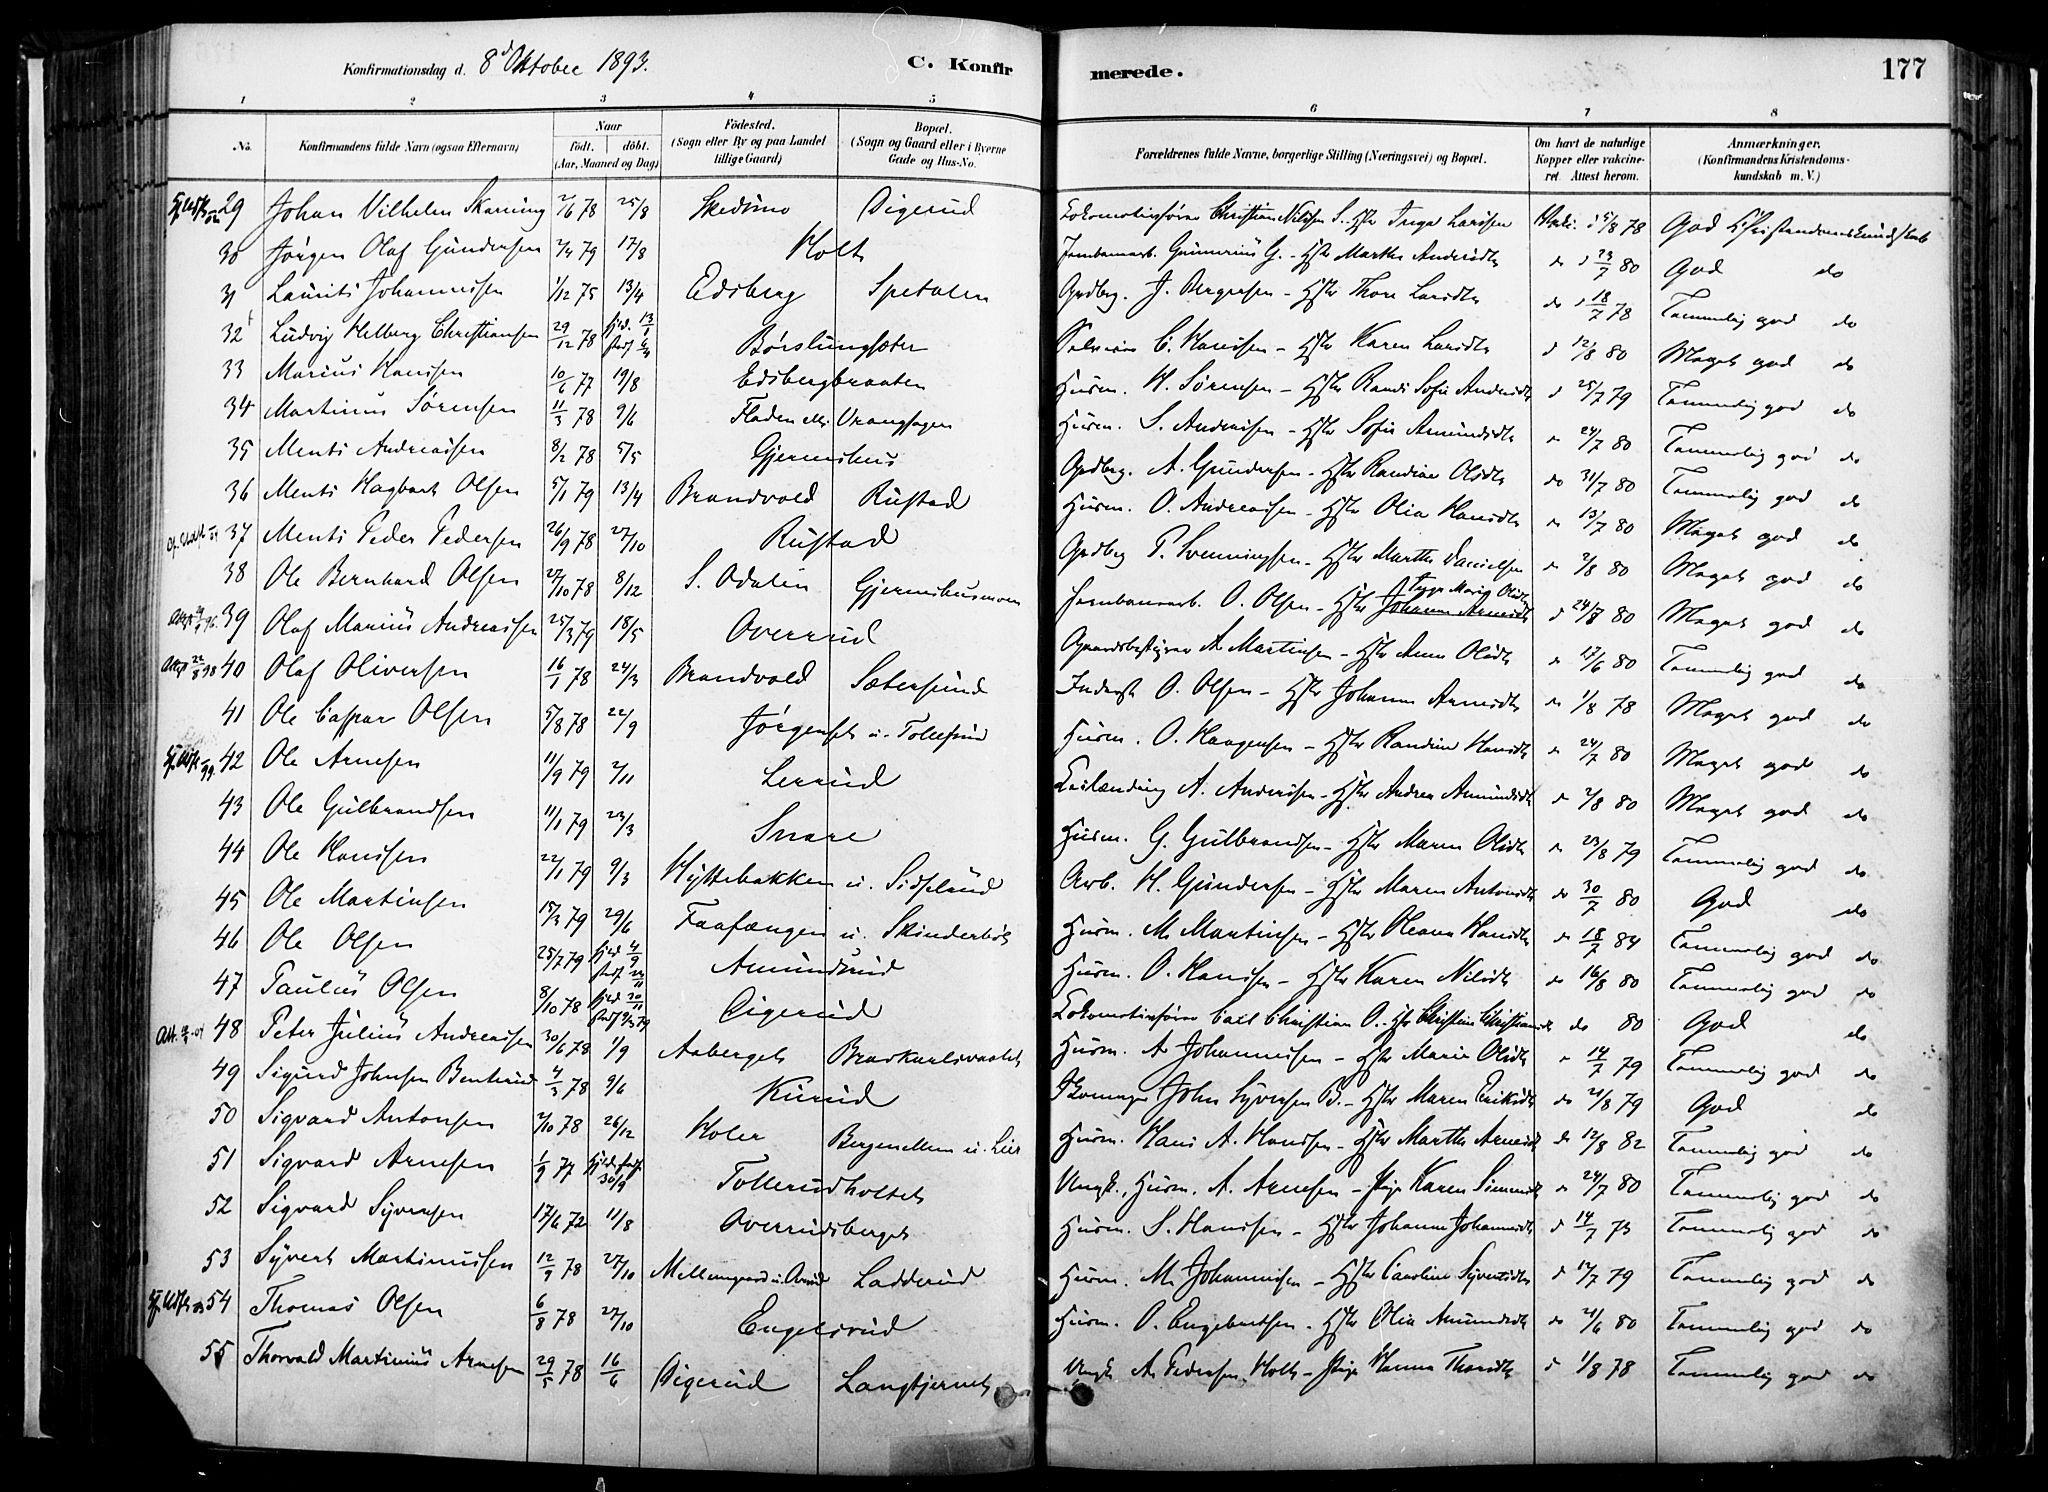 Konfirmationsdag d. 8d Oktober 1893.
C. Konfirmerede.
177
1 2 3 4 5 6 7 8
No.
Konfirmandens fulde Navn (ogsaa Efternavn)
Naar
født. døbt.
(Aar, Maaned og Dag)
Fødested.
(Sogn eller By og paa Landet tillige Gaard)
Bopæl.
(Sogn og Gaard eller i Byerne Gade og Hus-No.
Forældrenes fulde Navne, borgerlige Stilling (Næringsvei) og Bopæl.
Om havt de naturlige Kopper eller vakcineret. Attest herom.
Anmærkninger.
(Konfirmandens Kristendomskundskab m. V.)
29 Johan Vilhelm Skarning 2/6 78 25/8 Skedsmo Digerud Lokomotivfører Christian Nilsen S. Hstr Inga Larssen 78 God Christendomskundskab
30 Jørgen Olaf Gundersen 2/4 79 17/8 Holt Jernbanearb. Gunnerius G. - Hstr Marthe Andersdtr do 23/7 80 God do
31 Laurits Johannesen 1/12 75 13/4 Edsberg Spetalen Grdbr. J. Bergersen - Hstr Thore Larsdtr do 18/7 78 Temmelig god do
32 Ludvig Helberg Christiansen 29/12 78 hjed. 13/1 stadf 6/4 Børslungsæter C. Hansen - Hstr Karen Larsdtr 12/8 80 Meget god do
33 Marius Hansen 10/6 77 19/8 Edsbergbraaten Husm. H. Sørensen - Hstr Randi Sofie Andersdtr 25/7 79 Temmelig god do
34 Martinus Sørensen 11/3 78 9/6 Fladen Vrangsagen Husm. S. Andersen - Hstr Sofie Amundsdtr 24/7 80 Temmelig god do
35 Ments Andreassen 8/2 78 5/5 Gjermshus Grdbr. A. Gundersen - Hstr Randine Olsdtr do 31/7 80 Temmelig god do
36 Ments Hagbart Olsen 5/1 79 13/4 Brandvold Rustad Husm. O. Andreassen - Hstr Olia Hansdtr 13/7 80 Meget god do
37 Ments Peder Pedersen 26/9 78 27/10 Rustad Grdbr P. Svenningsen - Hstr Marthe Danielsen 2/8 80 Meget god do
38 Ole Bernhard Olsen 27/10 78 8/12 S. Odalen Gjermshusmoen Jernbanearb. O. Olsen - Hstr Johanne Arnesdtr 24/8 80 Meget god do
39 Olaf Marius Andreassen 25/3 79 18/5 Overrud Gaardsbestyrer A Martinsen - Hstr Anne Olsdtr 80 Temmelig god do
40 Olaf Oliversen 16/1 78 24/3 Brandvold Sætersund Inderst O. Olsen - Hstr Johanne Arnesdtr 1/8 78 Meget god do
41 Ole Caspar Olsen 5/8 78 22/9 Jørgenset u. Tollefsrud Husm. O. Haagensen - Hstr Randine Hansdtr 24/7 80 Meget god do
42 Ole Arnesen 11/9 79 2/11 Lerrud Leilænding A. Andersen - Hstr Andrea Amundsdtr 2/8 80 Meget god do
43 Ole Gulbrandsen 11/1 79 23/3 Snare Husm. G. Gulbrandsen - Hstr Maren Olsdtr 23/8 79 Temmelig god do
44 Ole Hansen 22/1 79 9/3 Hyttebakken u. Sidselrud Arb. H. Gundersen - Hstr Maren Antonsdtr do 30/7 80 God do
45 Ole Martinsen 15/3 79 29/6 Faafængen u. Skinderbøl Husm. M. Martinsen - Hstr Oleana Hansdtr 18/7 84 Temmelig god do
46 Ole Olsen 25/7 79 hjed 4/9 Amundsrud Husm. O. Hansen - Hstr Karen Nilsdtr 16/8 80 Temmelig god do
47 Paulus Olsen 8/10 78 hjed 20/11 stadf 9/3 79 Digerud Lokomotivfører Carl Christian O. Hstr Christine Christiansdtr do 80 God do
48 Peter Julius Andreassen 30/6 78 1/9 Aaberget Husm. A Johannesen - Hstr Marie Olsdtr 14/7 79 Temmelig god do
49 Sigurd Johnsen Benterud 4/3 78 9/6 Kurud John Syversen B. - Hstr Maren Eriksdtr do 21/8 79 God do
50 Sigvard Antonsen 2/10 78 26/12 Holer Bergenellen u. Lier Husm. Hans A. Hansen - Hstr Marthe Arnesdtr 12/8 82 Temmelig god do
51 Sigvard Arnesen 1/9 77 30/9 Tollerudholtet Ungk., Husm. A. Arnesen - Pige Karen Simensdtr 24/7 80 Temmelig god do
52 Sigvard Syversen 17/6 72 11/8 Overrudsberget Husm. S. Hansen - Hstr Johanne Johannesdtr 14/7 73 Temmelig god do
53 Syvert Martinussen 12/9 78 27/10 Ladderud Husm. M. Johannesen - Hstr Caroline Syversdtr 17/7 79 Temmelig god do
54 Thomas Olsen 6/8 78 27/10 Engelsrud Husm. O. Engebretsen - Hstr Olia Amundsdtr do 21/6 80 Temmelig god do
55 Thorvald Martinius Arnesen 29/5 78 16/6 Digerud Langtjernet Ungk A. Pedersen Holt - Pige Hanna Thorsdtr 1/8 78 Temmelig god do